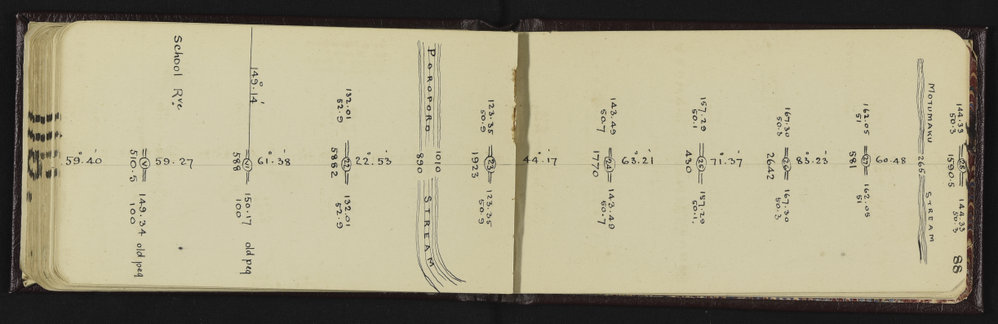 School Rve.
149°.14'
59°.40'
510.5
V
149.34 old peg
100
59.27
588
V
150.17 old peg
100
61°.38'
132.01
52.9
5862
22
132.01
52.9
22°.53'
POROPORO STREAM
890
1010
123.35
50.9
1923
23
123.35
50.9
44°.17'
143.49
50.7
1770
24
143.49
50.7
63°.21'
157.29
50.1
430
25
157.29
50.1
71°.37'
167.30
50.3
2642
26
167.30
50.3
83°.23'
162.05
51
581
27
162.05
51
60°.48'
MOTUMAKU STREAM
265
144.33
50.3
1590.5
28
144.33
50.3
88